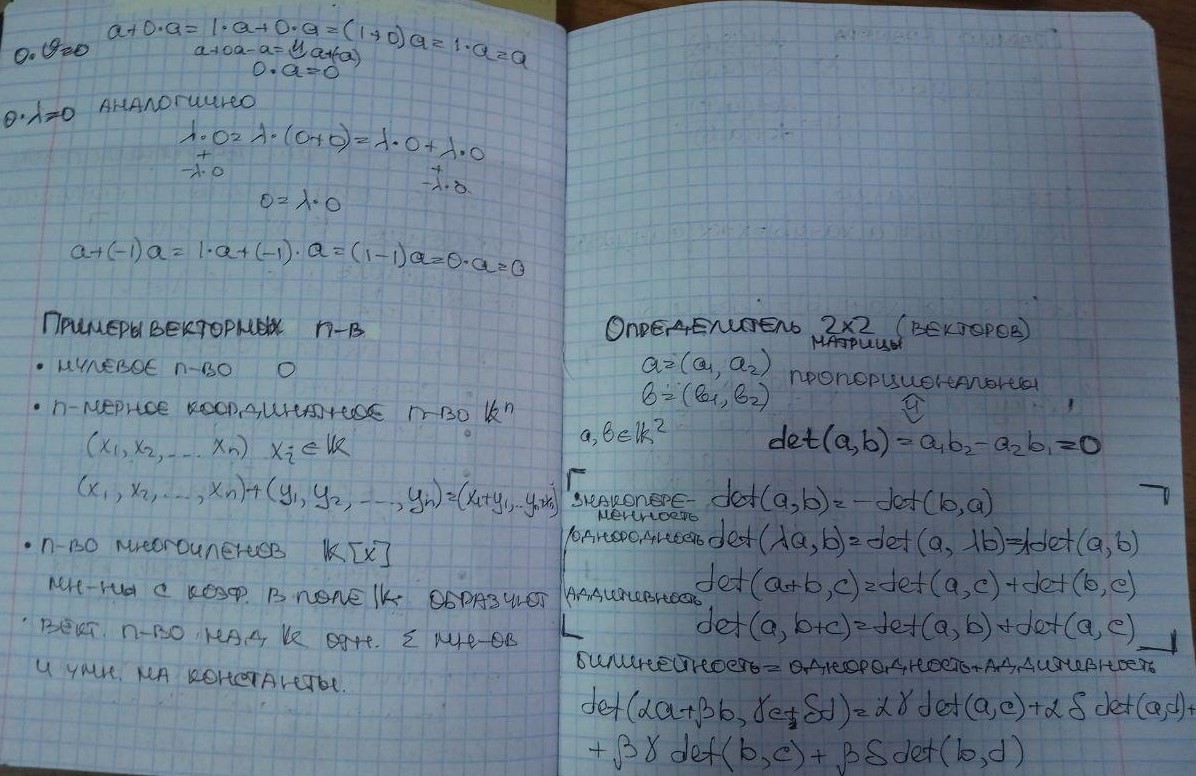 a+0·a=1·a+0·a=(1+0)a=1·a=a
0·v=0
a+0a-a=a+(-a)
0·a=0
0·λ=0 АНАЛОГИЧНО
λ·0=λ·(0+0)=λ·0+λ·0
+ +
-λ·0 -λ·0
0=λ·0
a+(-1)a=1·a+(-1)·a=(1-1)a=0·a=0
ПРИМЕРЫ ВЕКТОРНЫХ П-В
• НУЛЕВОЕ П-ВО 0
• n-МЕРНОЕ КООРДИНАТНОЕ П-ВО 𝕜ⁿ
(x₁,x₂,.... xₙ) xᵢ∈𝕜
(x₁,x₂,...,xₙ)+(y₁,y₂,...,yₙ)=(x₁+y₁,..yₙ+xₙ)
• П-ВО МНОГОЧЛЕНОВ 𝕜[x]
МН-НЫ С КОЭФ. В ПОЛЕ 𝕜 ОБРАЗУЮТ
ВЕКТ. П-ВО НАД 𝕜 ОТН. Σ МН-ОВ
И УМН. НА КОНСТАНТЫ.
ОПРЕДЕЛИТЕЛЬ 2x2 (ВЕКТОРОВ)
МАТРИЦЫ
a=(a₁,a₂)
ПРОПОРЦИОНАЛЬНЫ
b=(b₁,b₂)
⇕
a,b∈𝕜² det(a,b)=a₁b₂-a₂b₁=0
ЗНАКОПЕРЕ- det(a,b)=-det(b,a)
МЕННОСТЬ
ОДНОРОДНОСТЬ det(λa,b)=det(a,λb)=λdet(a,b)
det(a+b,c)=det(a,c)+det(b,c)
АДДИТИВНОСТЬ
det(a,b+c)=det(a,b)+det(a,c)
БИЛИНЕЙНОСТЬ=ОДНОРОДНОСТЬ+АДДИТИВНОСТЬ
det(αa+βb,γc+δd)=αγdet(a,c)+αδdet(a,d)+
+βγdet(b,c)+βδdet(b,d)